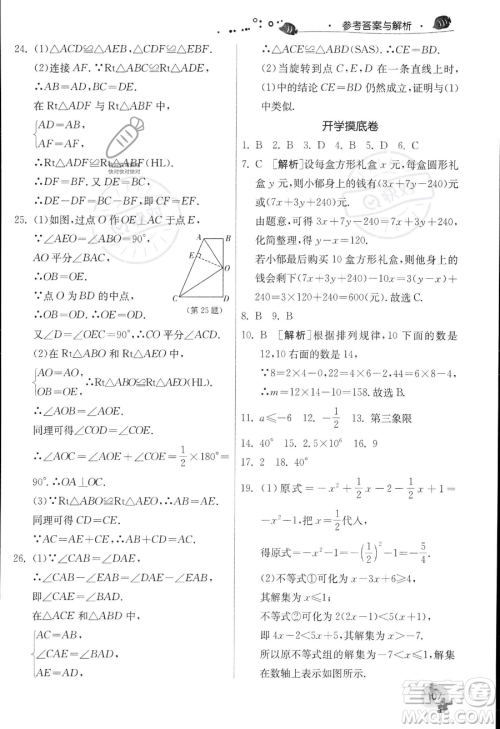 参考答案与解析
24. (1)△ADC≌△AEB,△ACF≌△ABF.
(2)连接 AF. ∵Rt△ABC≌Rt△ADE,
∴AC=AE,BC=DE,AB=AD.
在 Rt△ADF 与 Rt△ABF 中,
AD=AB,
AF=AF,
∴Rt△ADF≌Rt△ABF(HL).
∴DF=BF.
∴BC-BF=DE-DF,即 CF=EF.
25. (1)如图,过点 O 作 OE⊥AC 于点 E.
∵∠AEO=∠ABO=90°,
AO 平分∠BAC,
∴OB=OE.
∵点 O 为 BD 的中点,
∴OB=OD. ∴OE=OD.
又∠D=∠OEC=90°,∴OC 平分∠ACD.
(第 25 题)
(2) 在 Rt△ABO 和 Rt△AEO 中,
AO=AO,
OB=OE,
∴Rt△ABO≌Rt△AEO(HL).
∴∠AOB=∠AOE.
同理可得∠COD=∠COE.
∴∠AOC=∠AOE+∠COE=1/2×180°=
90°. ∴OA⊥OC.
(3)∵Rt△ABO≌Rt△AEO,∴AB=AE.
同理可得 CD=CE.
∵AC=AE+CE,∴AB+CD=AC.
26. (1)∵∠CAB=∠EAD,
∴∠CAB-∠EAB=∠EAD-∠EAB.
∴∠CAE=∠BAD.
在△ACE 和△ABD 中,
AC=AB,
∠CAE=∠BAD,
AE=AD,
∴△ACE≌△ABD(SAS). ∴CE=BD.
(2)当旋转到点 C,E,D 在一条直线上时,
(1)中的结论 CE=BD 仍然成立,证明与(1)
中类似.
开学摸底卷
1. B 2. B 3. C 4. B 5. A 6. B
7. C [解析]设每盒方形礼盒 x 元,每盒圆形礼
盒 y 元,则小郁身上的钱有(3x+7y-240)元
或(7x+3y+240)元.
由题意,可得 3x+7y-240=7x+3y+
240,化简整理,得 y-x=120.
若小郁最后购买 10 盒方形礼盒,则他身上的
钱会剩下(7x+3y+240)-10x=3(y-x)+
240=3×120+240=600(元). 故选 C.
8. B 9. B
10. B [解析]根据排列规律,10 下面的数是
12,10 右面的数是 14,
∵8=2×4-0,22=4×6-2,44=6×8-4,
∴m=12×14-10=158. 故选 B.
11. a≤-6 12. -1/2 13. 第三象限
14. 40° 15. 0.5≤x≤5 16. 9
17. 2 18. 40°
19. (1)原式=-x²+1/2x-2-1/2x+1=
-x²-1,把 x=1/2代入,
得原式=-x²-1=-(1/2)²-1=-5/4.
(2)不等式①可变形为 x-3x+6≥4,
其解集为 x≤1.
不等式②可变形为 2(2x-1)<5(x+1),
即 4x-2<5x+5,解集为 x>-7.
所以原不等式组的解集为-7<x≤1,解集
在数轴上表示如图所示.